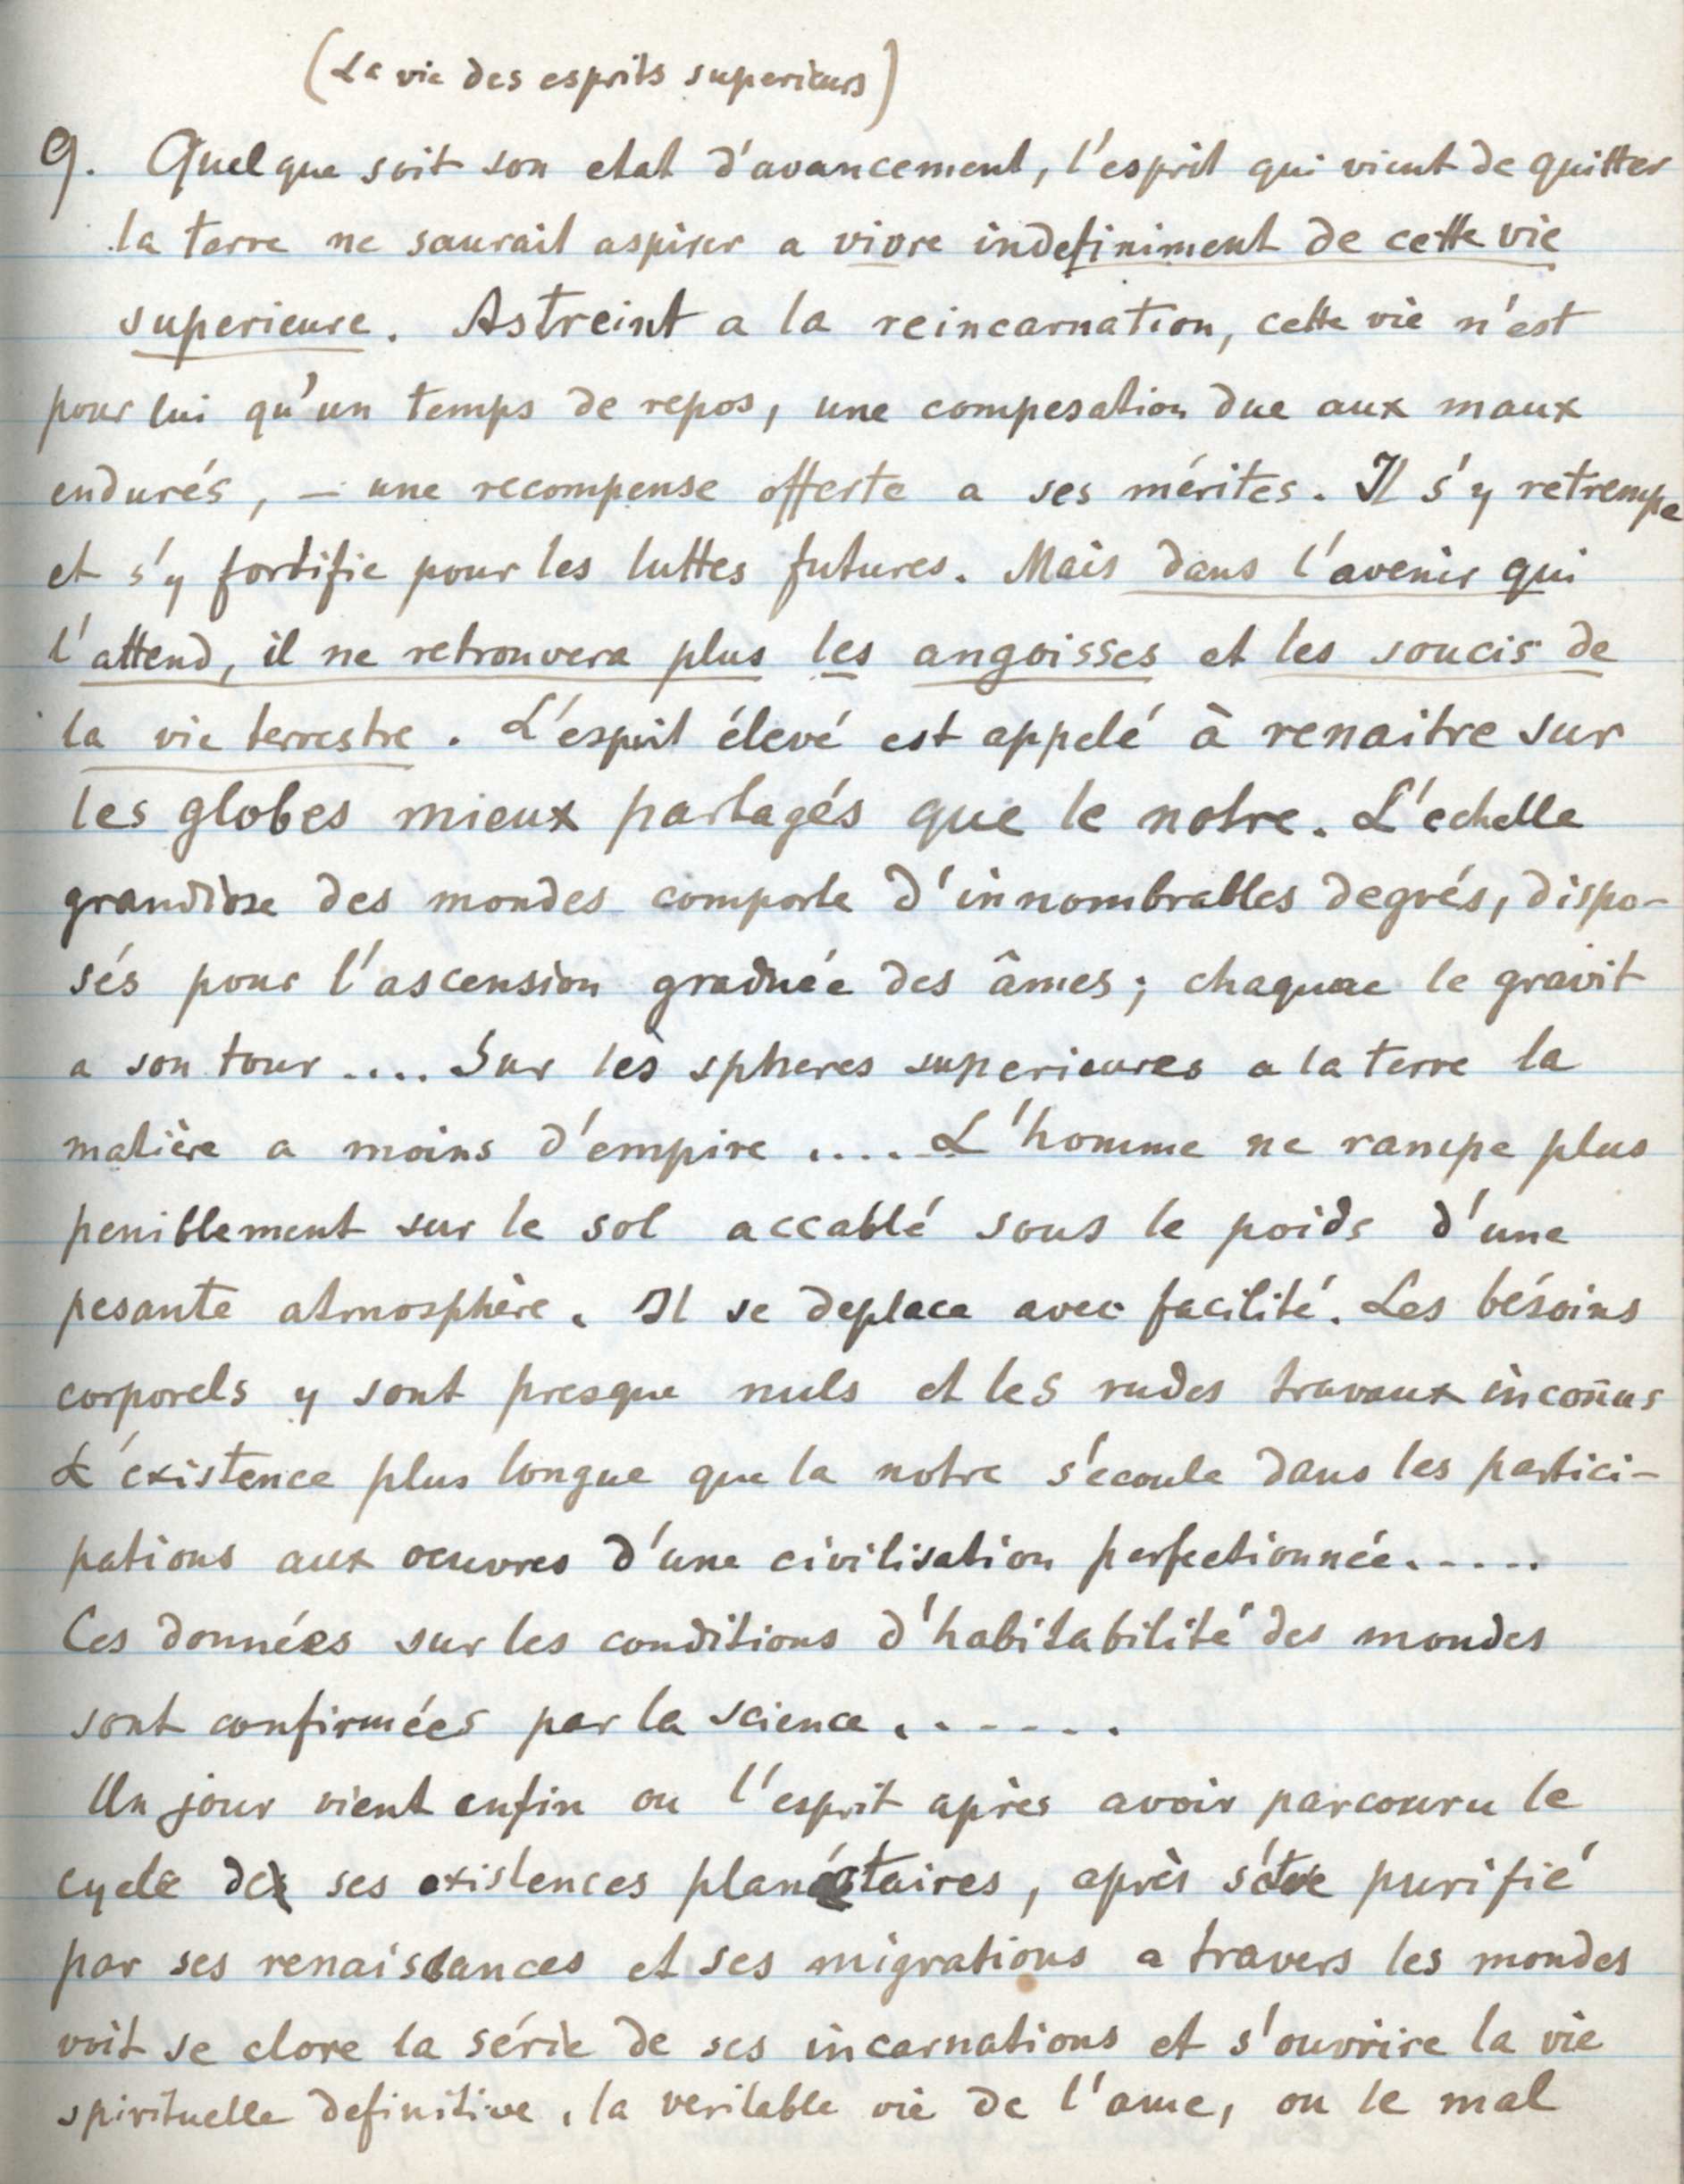 (La vie des esprits superieurs)
9. Quel que soit son etat d'avancement, l'esprit qui vient de quitter
la terre ne saurait aspirer a vivre indefiniment de cette vie
superieure. Astreint a la reincarnation, cette vie n'est
pour lui qu'un temps de repos, une compesation due aux maux
endurés, – une recompense offerte a ses mérites. Il s'y retrempe
et s'y fortifie pour les luttes futures. Mais dans l'avenir qui
l'attend, il ne retrouvera plus les angoisses et les soucis de
la vie terrestre. L'esprit élevé est appelé à renaitre sur
les globes mieux partagés que le notre. L'echelle
grandiose des mondes comporte d'innombrables degrés, dispo-
sés pour l'ascension graduée des âmes; chaquae le gravit
a son tour .... Sur les spheres superieures a la terre la
matière a moins d'empire .... L'homme ne rampe plus
peniblement sur le sol accablé sous le poids d'une
pesante atmosphère. Il se deplace avec facilité. Les bésoins
corporels y sont presque nuls et les rudes travaux incon̄us
L'existence plus longue que la notre s'ecoule dans les partici-
pations aux oeuvres d'une civilisation perfectionnée.....
Ces données sur les conditions d'habitabilité des mondes
sont confirmées par la science......
Un jour vient enfin ou l'esprit après avoir parcouru le
cycle de ses existences planétaires, après s'étre purifié
par ses renaissances et ses migrations a travers les mondes
voit se clore la série de ses incarnations et s'ouvrire la vie
spirituelle definitive, la veritable vie de l'ame, ou le mal